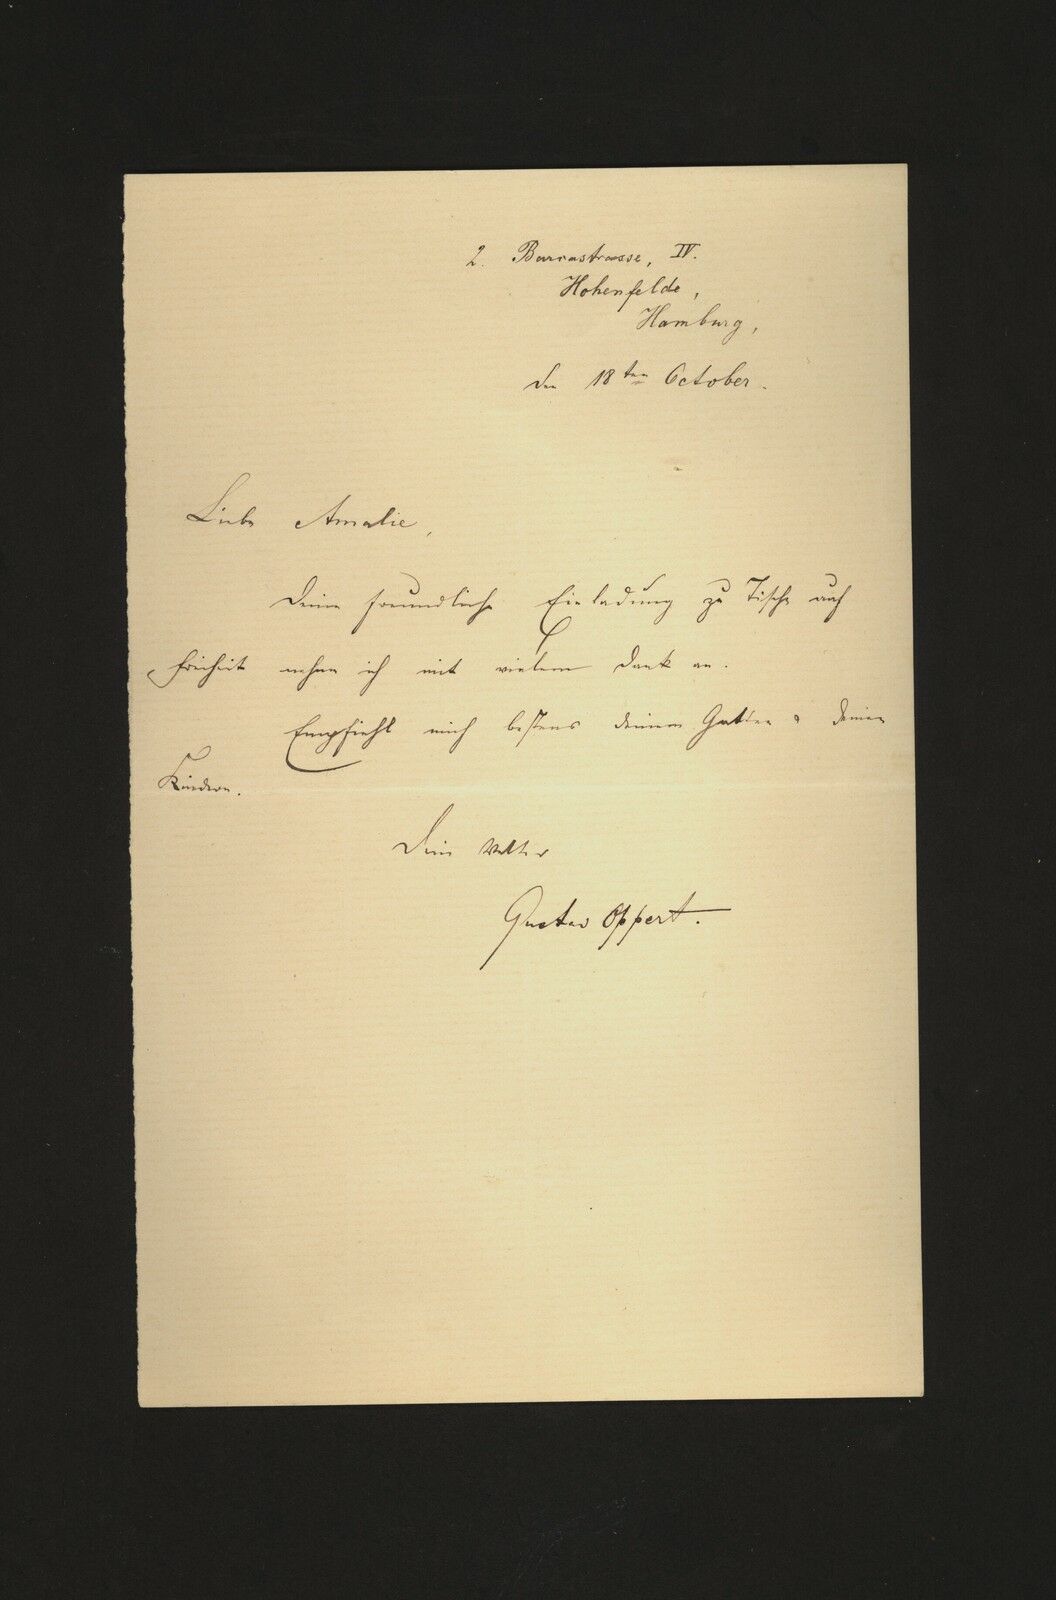 2. Barcastrasse, IV.
Hohenfelde,
Hamburg,
den 18ten October.
Liebe Amalie,
Deine freundliche Einladung zu Tische auf
nehme ich mit vielem Dank an.
Empfiehl mich bestens deinem Gatten u deinen
Kindern.
Dein Vetter
Gustav Oppert.